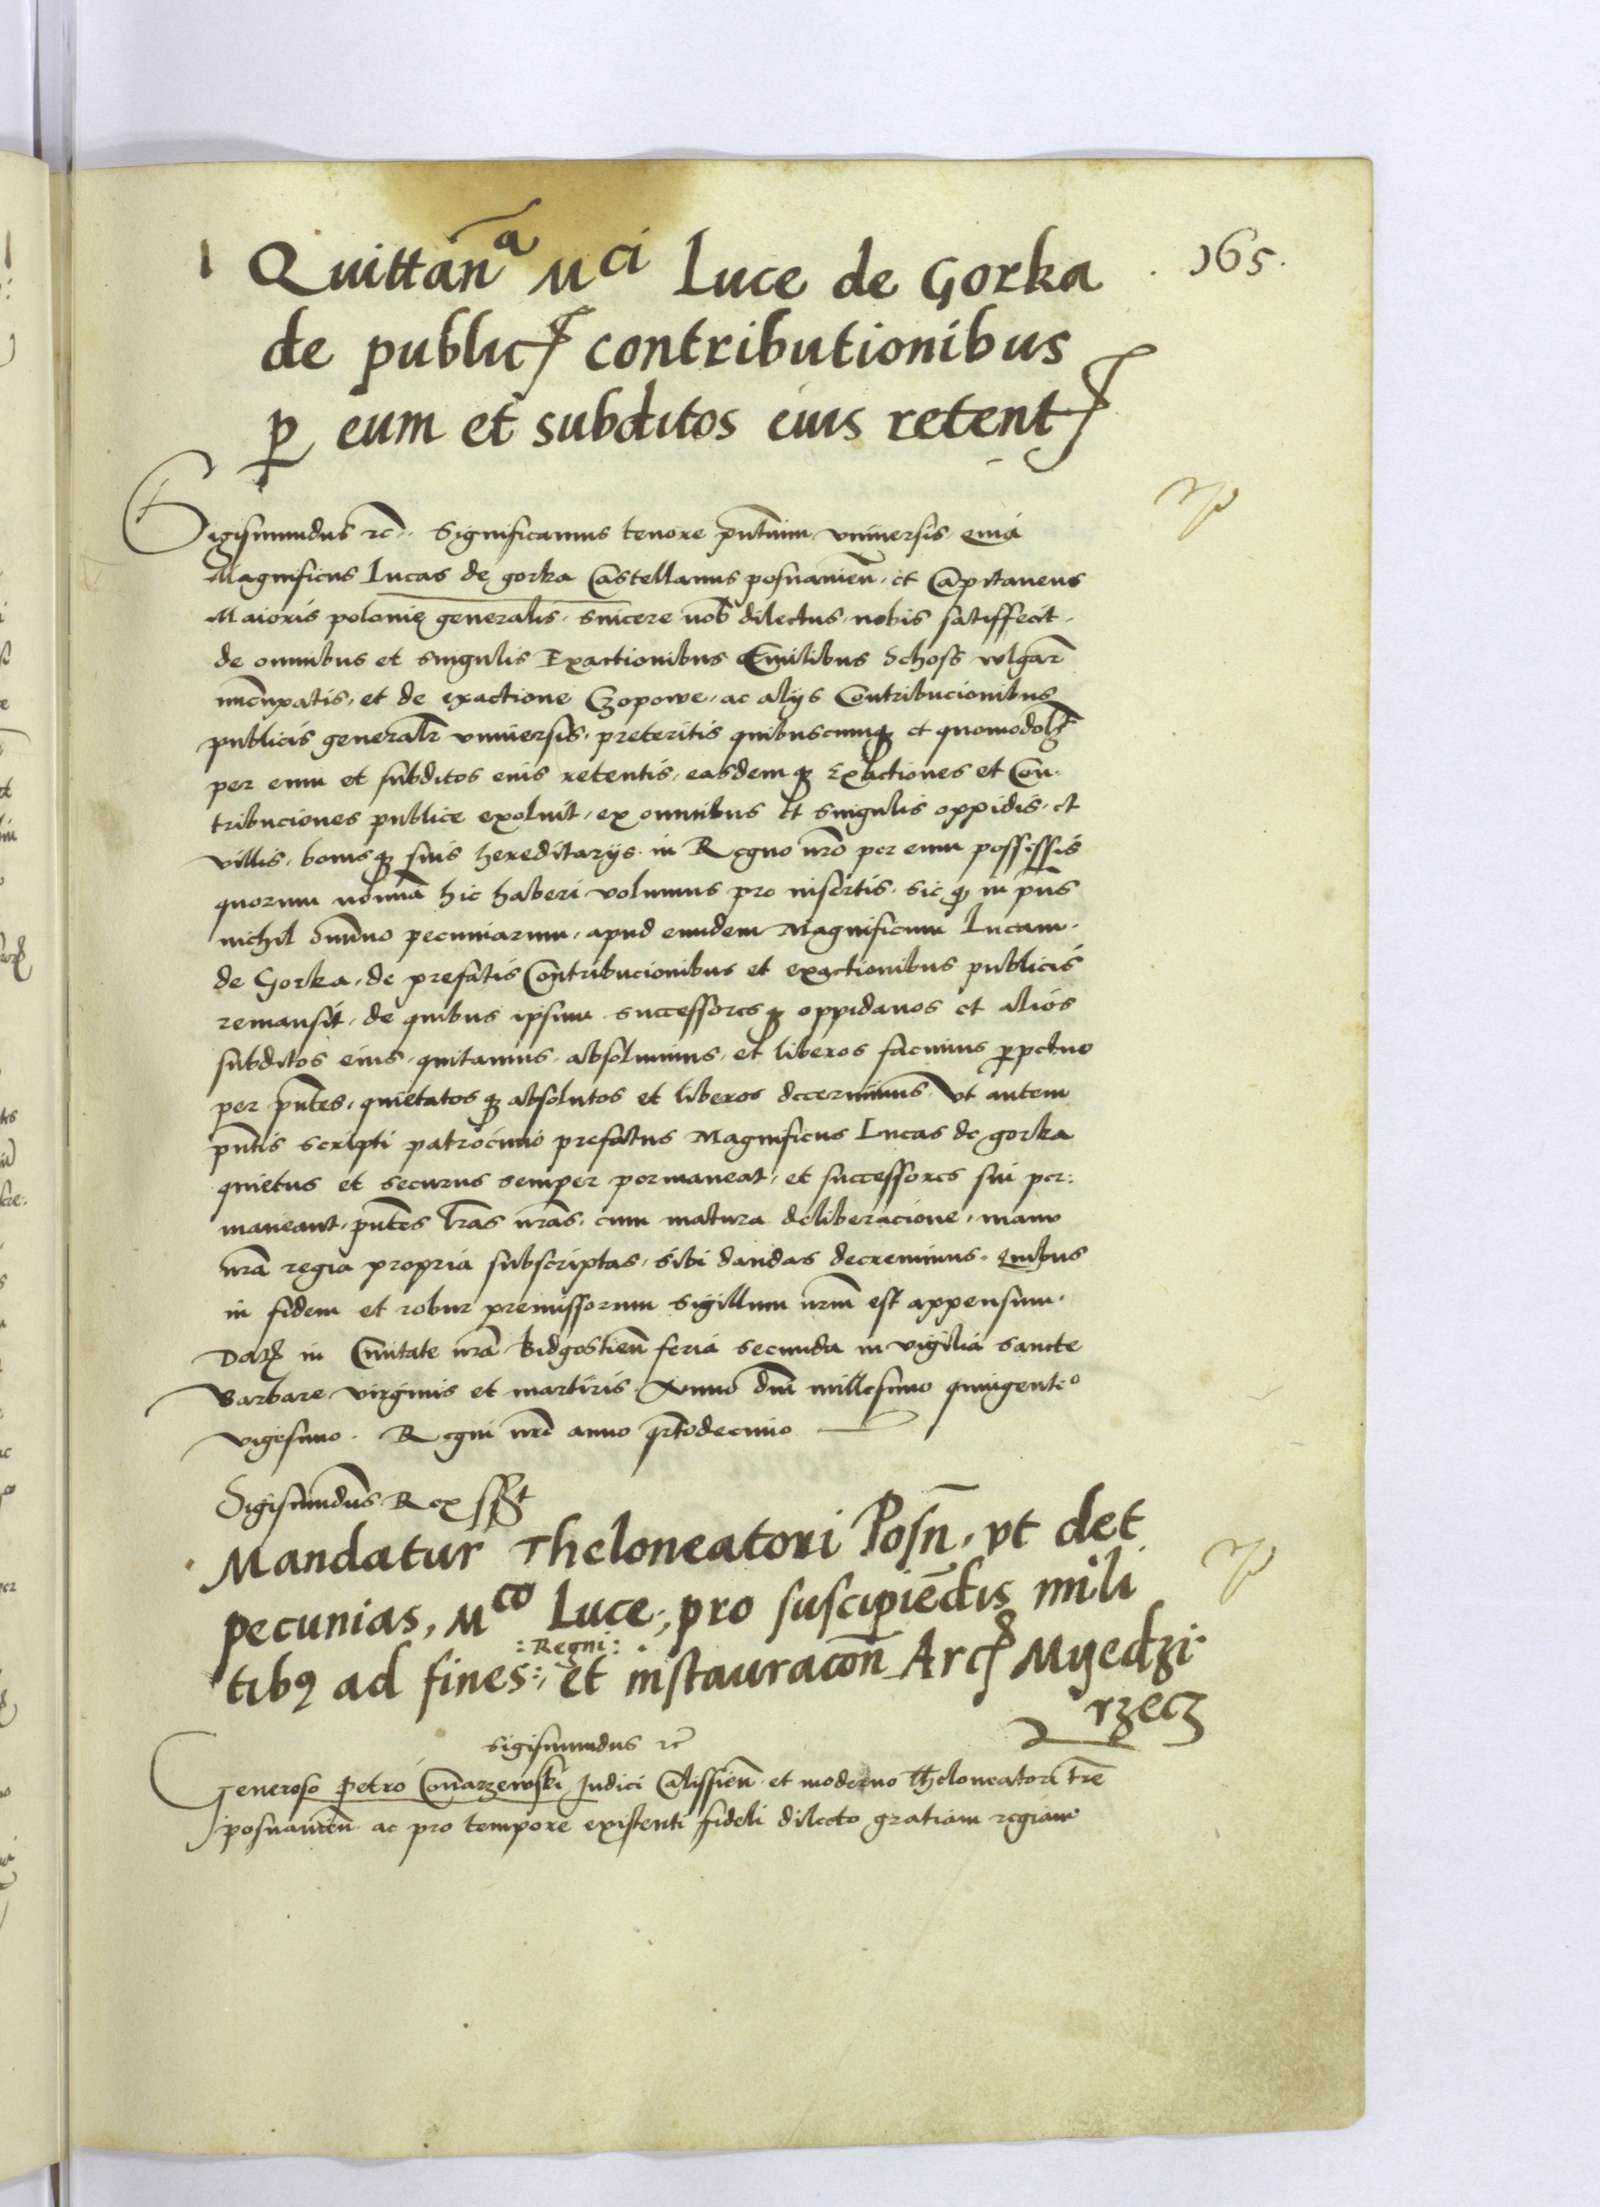 Quittanᵃ Mci Luce de Gorka
165.
de public contributionibus
p eum et subditos eius retent
Sigismundus rc. Significamus tenore pntium vniuersis quia
Magnificus Lucas de gorka Castellanus posnanien. et Capitaneus
Maioris polonie generalis. sincere nob dilectus. nobis satisffecit.
de omnibus et singulis Exactionibus Ciuilibus Schoss vlgar
nuncupatis. et de exactione Czopowe. ac alijs Contribucionibus
publicis generalr vniuersis. preteritis quibuscumq et quomodolz
per eum et subditos eius retentis. easdemq Exactiones et Con
tribuciones publice exoluit. ex omnibus et singulis oppidis. et
villis. bonisq suis hereditarijs. in Regno nro per eum possessis
quorum noina hic haberi volumus pro insertis. sic q in pns
nichil omnino pecuniarum. apud eundem Magnificum Lucam.
de Gorka. de prefatis Contribucionibus et exactionibus publicis
remansit. de quibus ipsum successoresq oppidanos et alios
subditos eius. quitamus. absoluimus. et liberos facimus ppetuo
per pntes. quietatosq absolutos et liberos decernimus. Vt autem
pntis scripti patrocinio prefatus Magnificus Lucas de gorka
quietus et securus semper permaneat. et successores sui per:
maneant. pntes lras nras. cum matura deliberacione. manu
nra regia propria subscriptas. sibi dandas decreuimus. quibus
in fidem et robur premissorum sigillum nrm est appensum.
Dat in Ciuitate nra Bidgostien feria secunda in vigilia sancte
Barbare virginis et martiris. Anno dni millesimo quingenteo
vigesimo. Regni nri anno qrtodecimo
Sigismundus Rex sst
Mandatur Theloneatori Posn. vt det
pecunias, Mco Luce, pro suscipiedis mili
:Regni:
tibq ad fines: et instauracon Arc Myedzi
rzecz
Sigismundus rc
Generoso Petro Conarzewski Iudici Calissien. et moderno Theloneatori tre
posnanien. ac pro tempore existenti fideli dilecto gratiam regiam